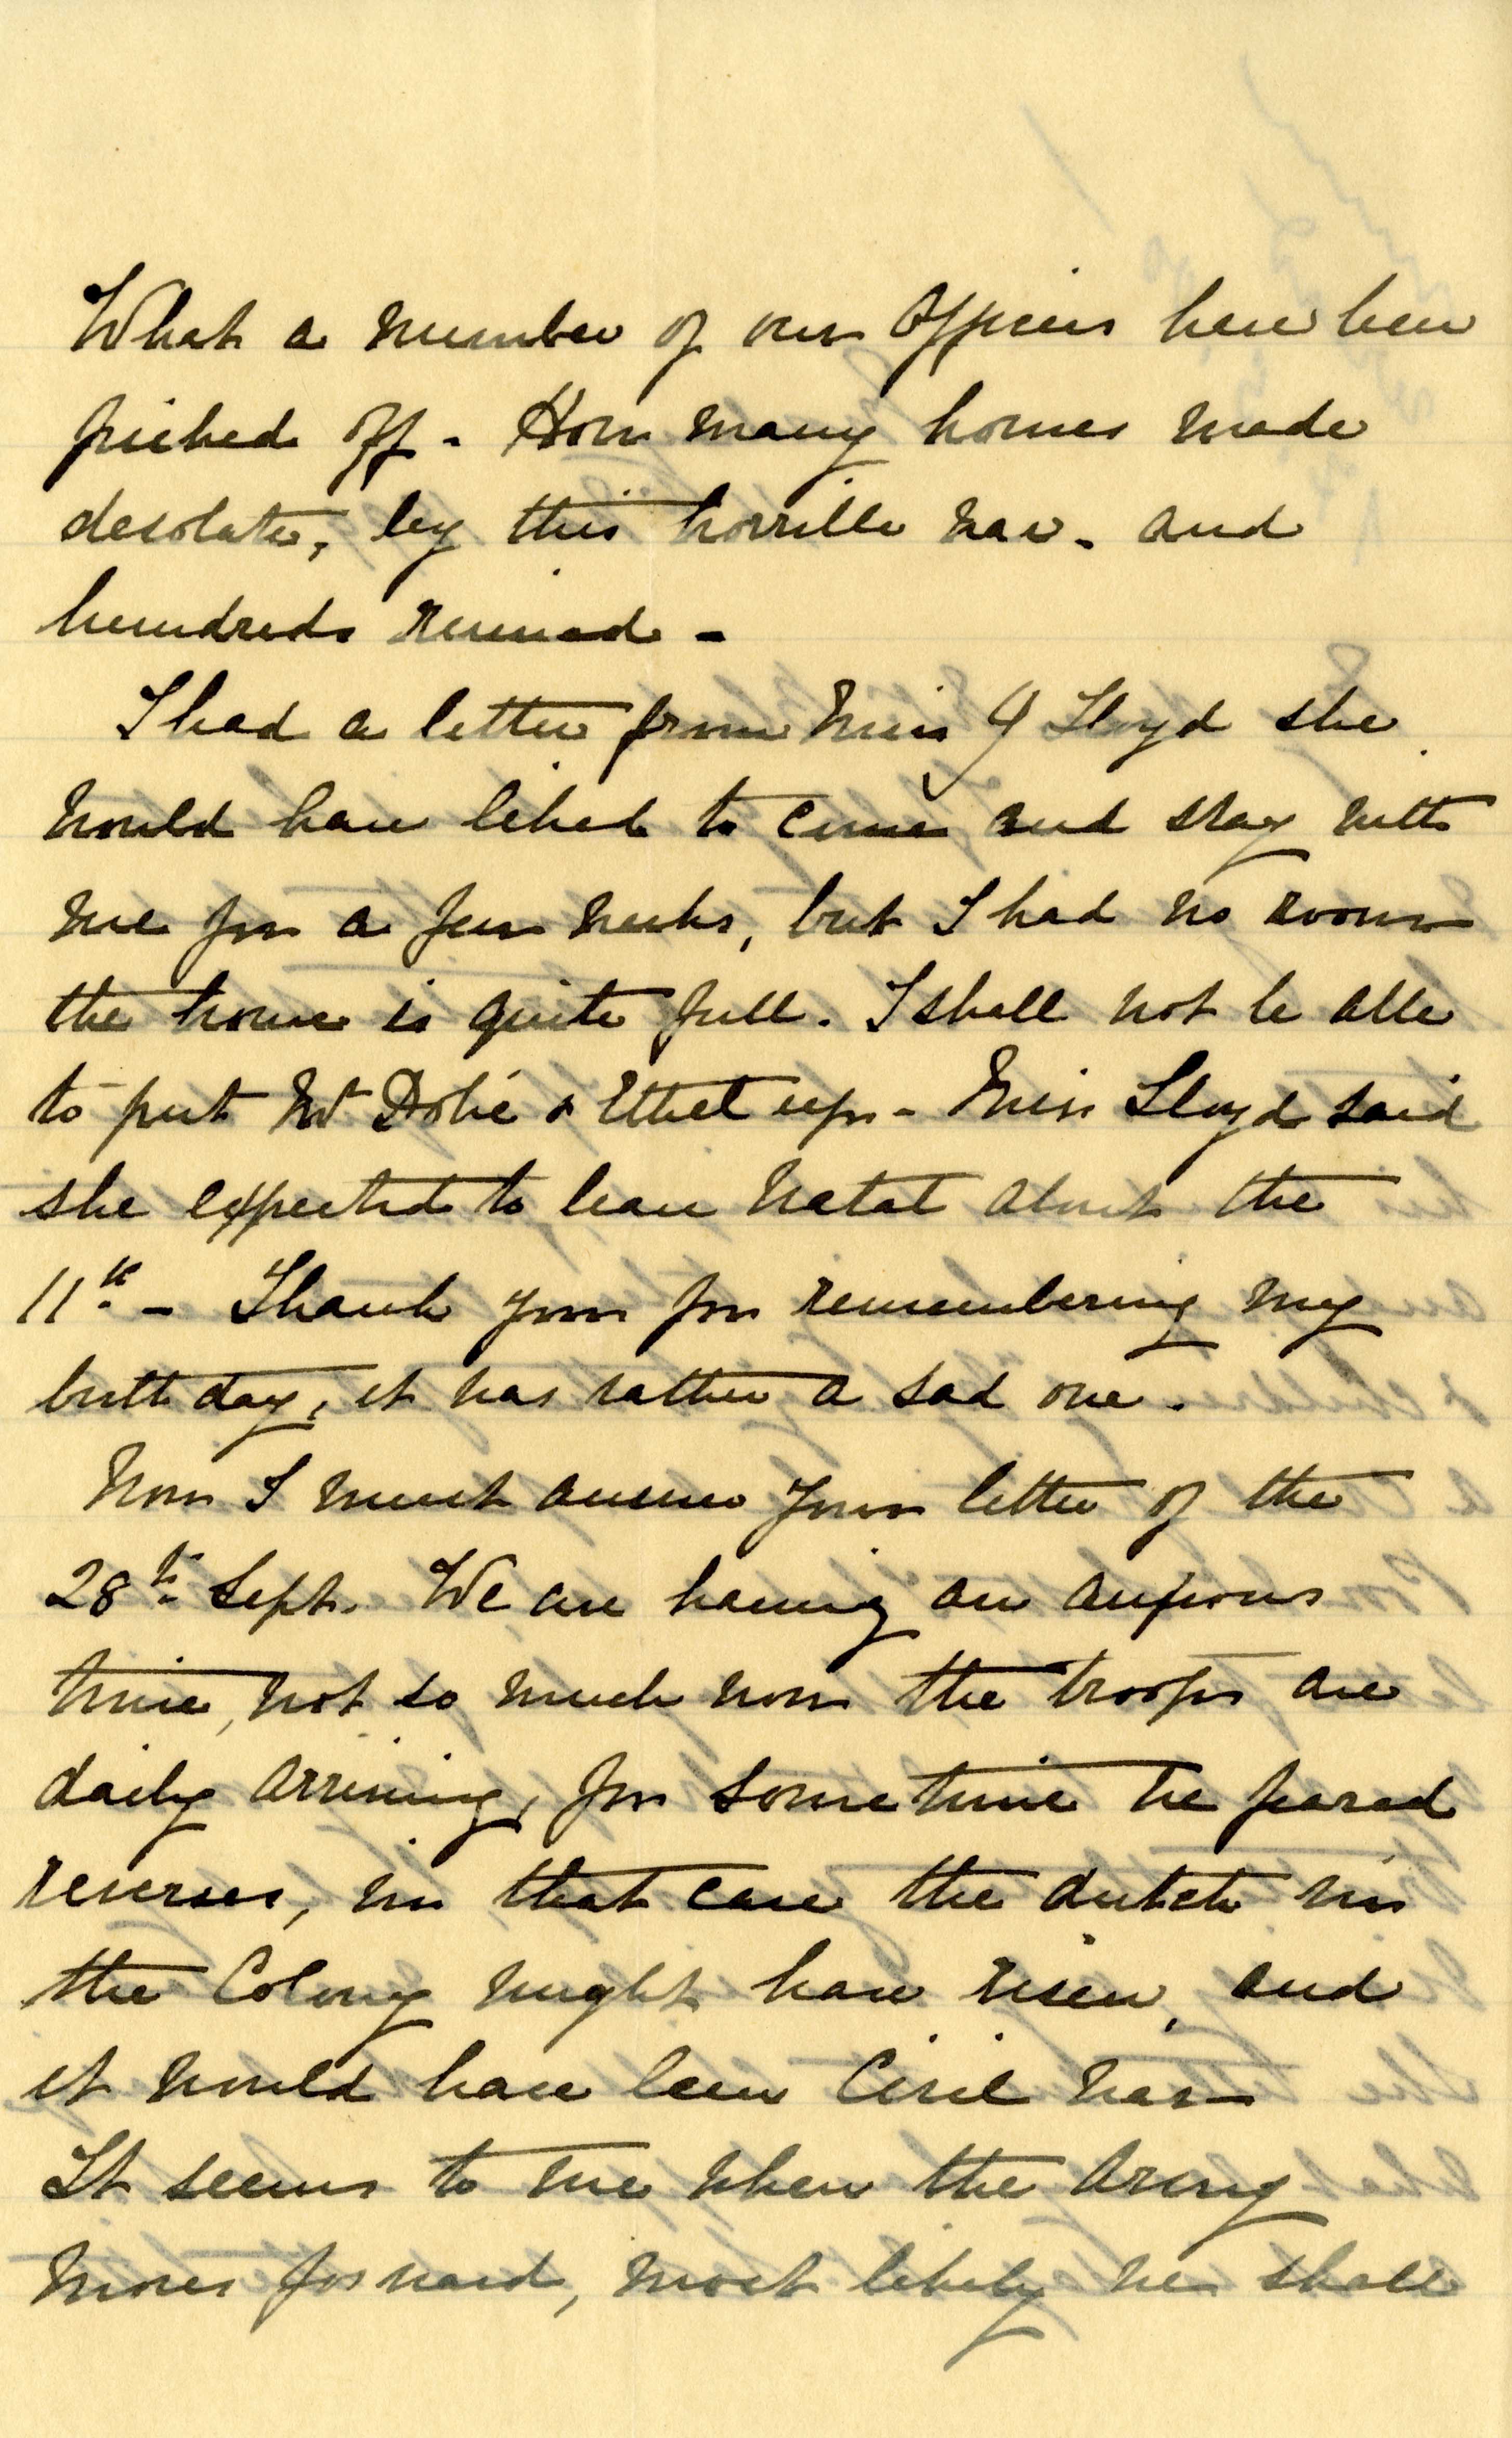 What a number of our Officers have been
picked off - How many homes made
desolate, by this horrible war - and
hundreds ruined -
I had a letter from Miss J Lloyd she
would have liked to come and stay with
me for a few weeks, but I had no room
the house is quite full. I shall not be able
to put Mr Dobié & Ethel up - Miss Lloyd said
she expected to leave Natal about the
11th - Thank you for remembering my
birthday, it was rather a sad one.
Now I must answer your letter of the
28th Sept. We are having an anxious
time, not so much now the troops are
daily arriving, for sometime we feared
reverses, in that case the dutch in
the Colony might have risen, and
it would have been Civil war
It seems to me when the Army
moves forward, most likely we shall